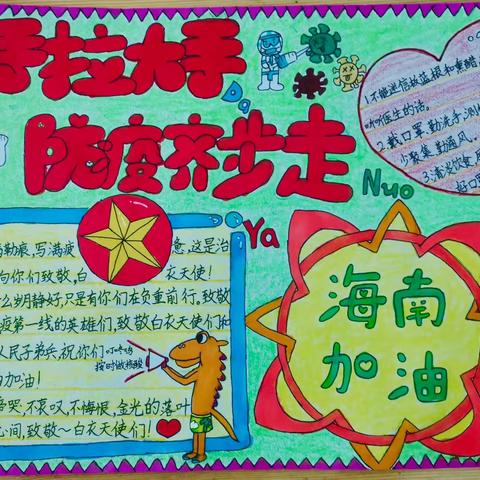 手拉大手
防疫齐步走
Dg
Nuo
Ya
1.不能迷信板蓝根和熏醋
听医生的话。
2.戴口罩,勤洗手,测
少聚集,勤通风。
3.清淡饮食,
好口罩
勒痕,写满疲
惫,这是治
向你们致敬,白
衣天使!
么岁月静好,只是有你们在负重前行,致敬
疫第一线的英雄们,致敬白衣天使们和
人民子弟兵,祝你们
叮咚鸡
按时做核酸
加油!
哭,不哀叹,不悔恨,金光的落叶
心间,致敬~白衣天使们!
海南
加油